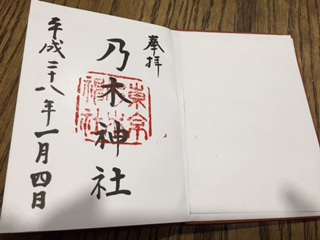 奉拝
乃木神社
平成二十八年一月四日